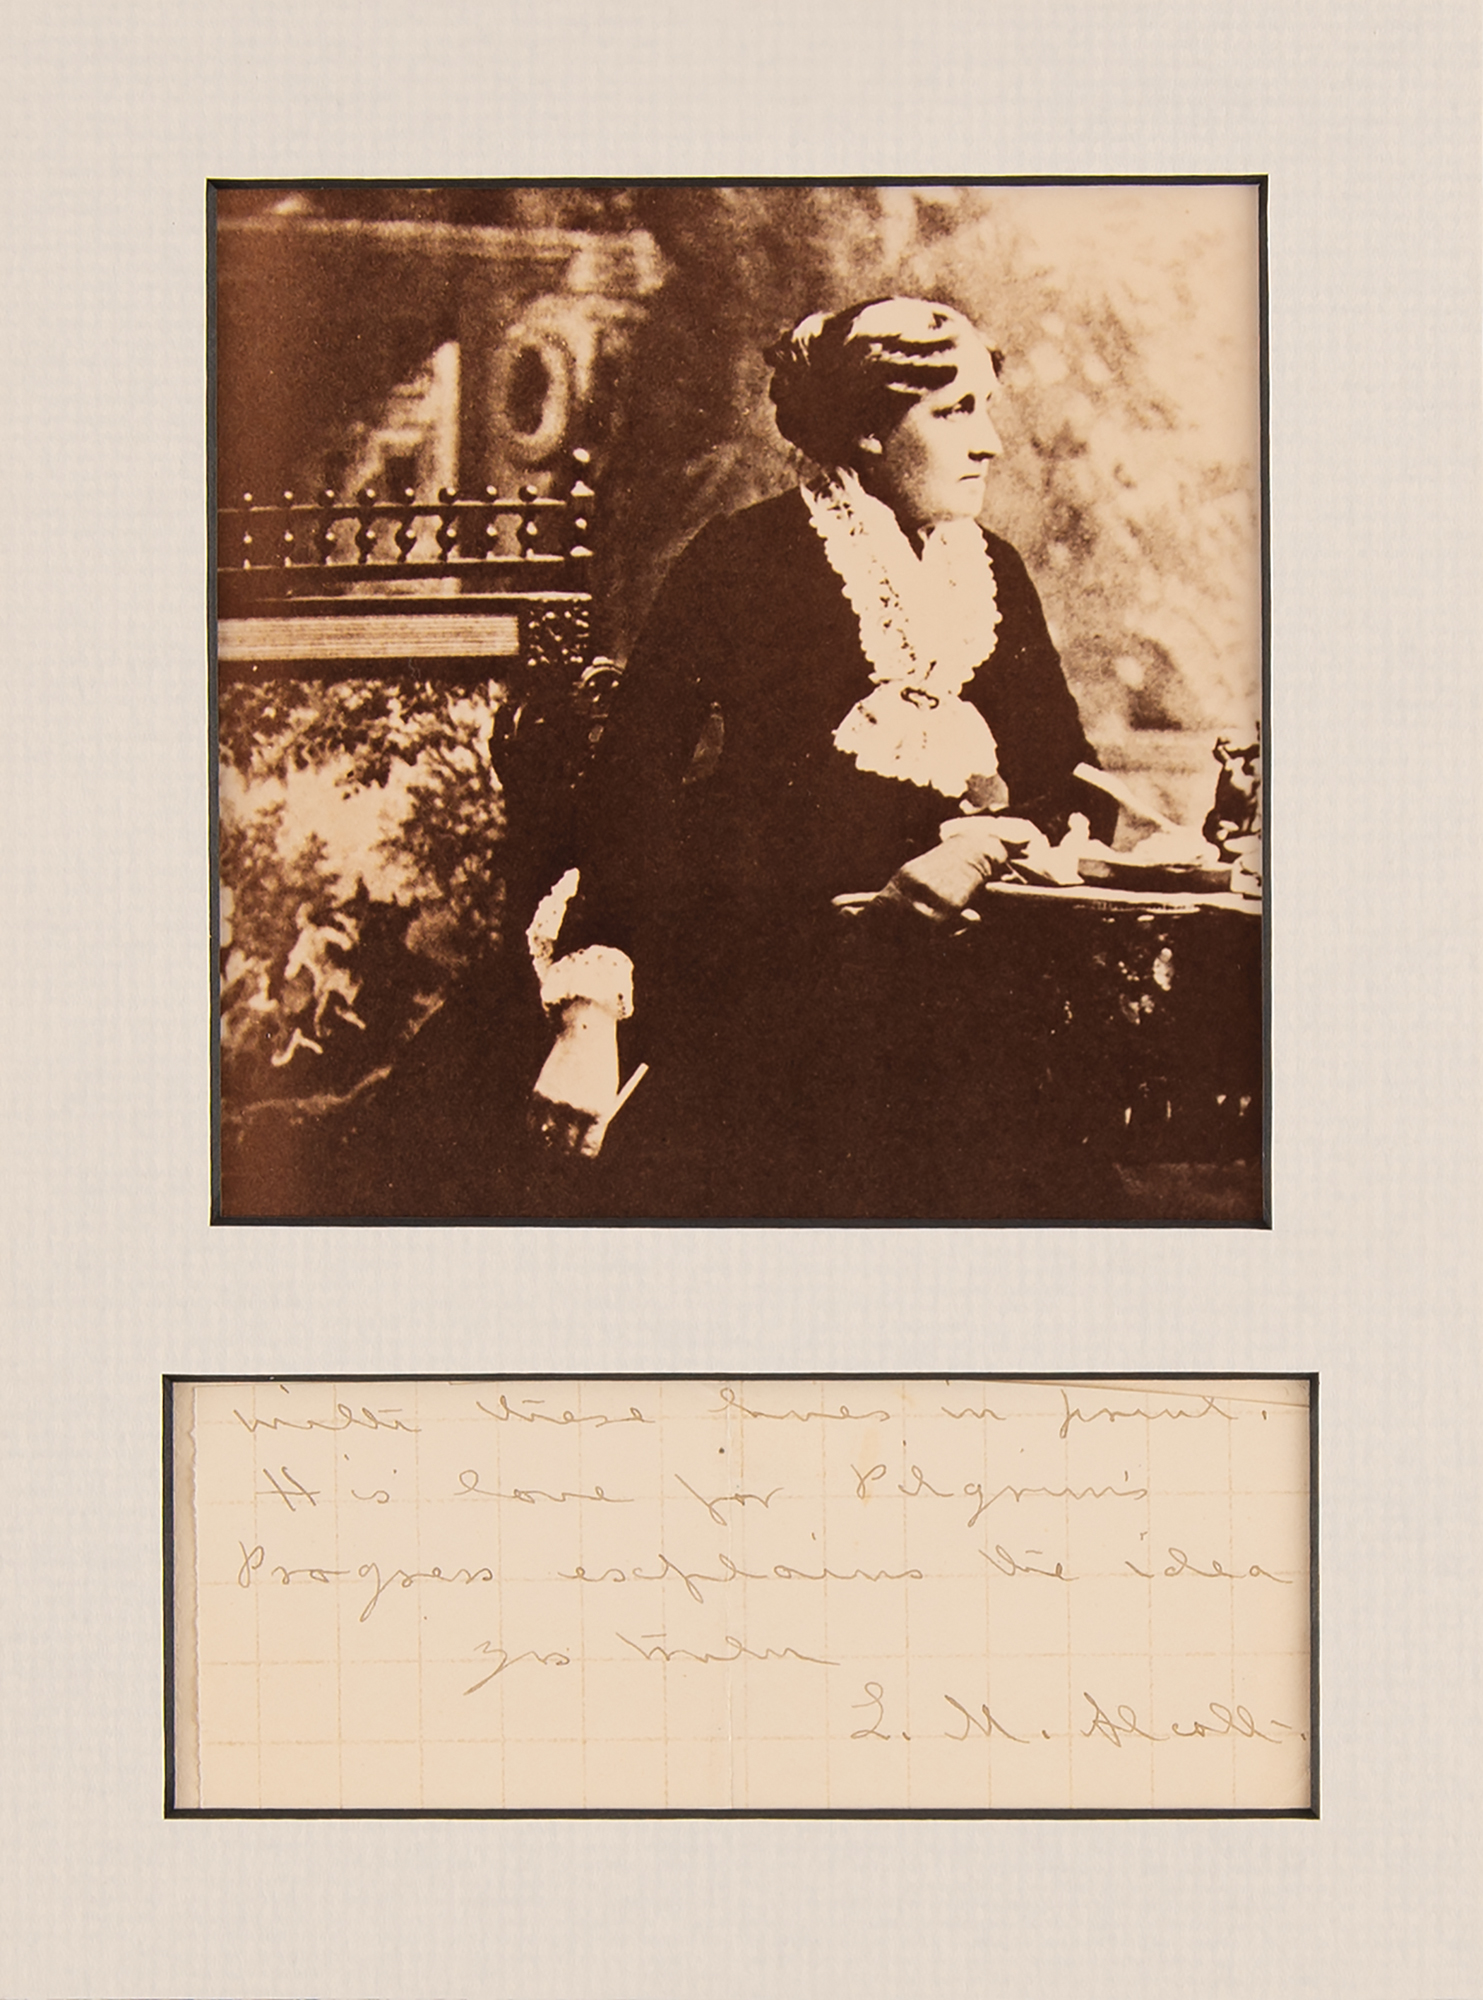 these lines in print.
His love for Pilgrim's
Progress explains the idea
yrs truly
L. M. Alcott.